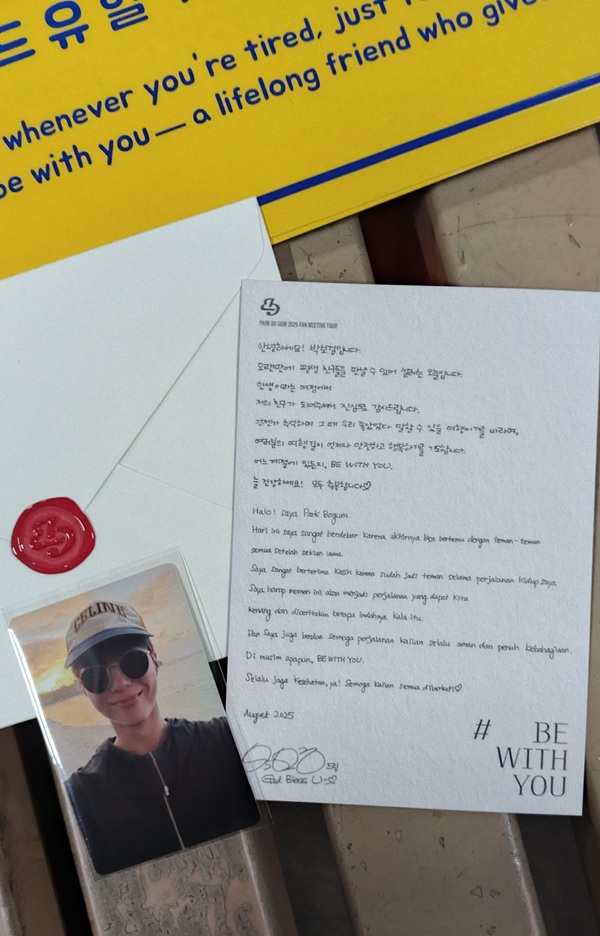 드유얼
whenever you're tired, just
be with you — a lifelong friend who give
PARK BO GUM 2025 FAN MEETING TOUR
안녕하세요! 박보검입니다.
오랜만에 평생 친구들을 만날 수 있어 설레는 오늘입니다.
인생이라는 여정에서
저의 친구가 되어주셔서 진심으로 감사드립니다.
언젠가 추억하며 그 때 우리 좋았었다 말할 수 있는 여행이기를 바라며,
여러분의 여행길이 언제나 안전하고 행복하기를 기도합니다.
어느 계절에 있든지, BE WITH YOU.
늘 건강하세요! 모두 축복합니다♡
Halo! Saya Park Bogum
Hari ini saya sangat berdebar karena akhirnya bisa bertemu dengan teman-teman
semua setelah sekian lama.
Saya sangat berterima kasih karena sudah jadi teman selama perjalanan hidup saya.
Saya harap momen ini akan menjadi perjalanan yang dapat kita
kenang dan ceritakan betapa indahnya kala itu.
Dan saya juga berdoa semoga perjalanan kalian selalu aman dan penuh kebahagiaan.
Di musim apapun, BE WITH YOU.
Selalu jaga kesehatan, ya! Semoga kalian semua diberkati♡
August 2025
드림
God Bless U~♡
# BE
WITH
YOU
CELINE